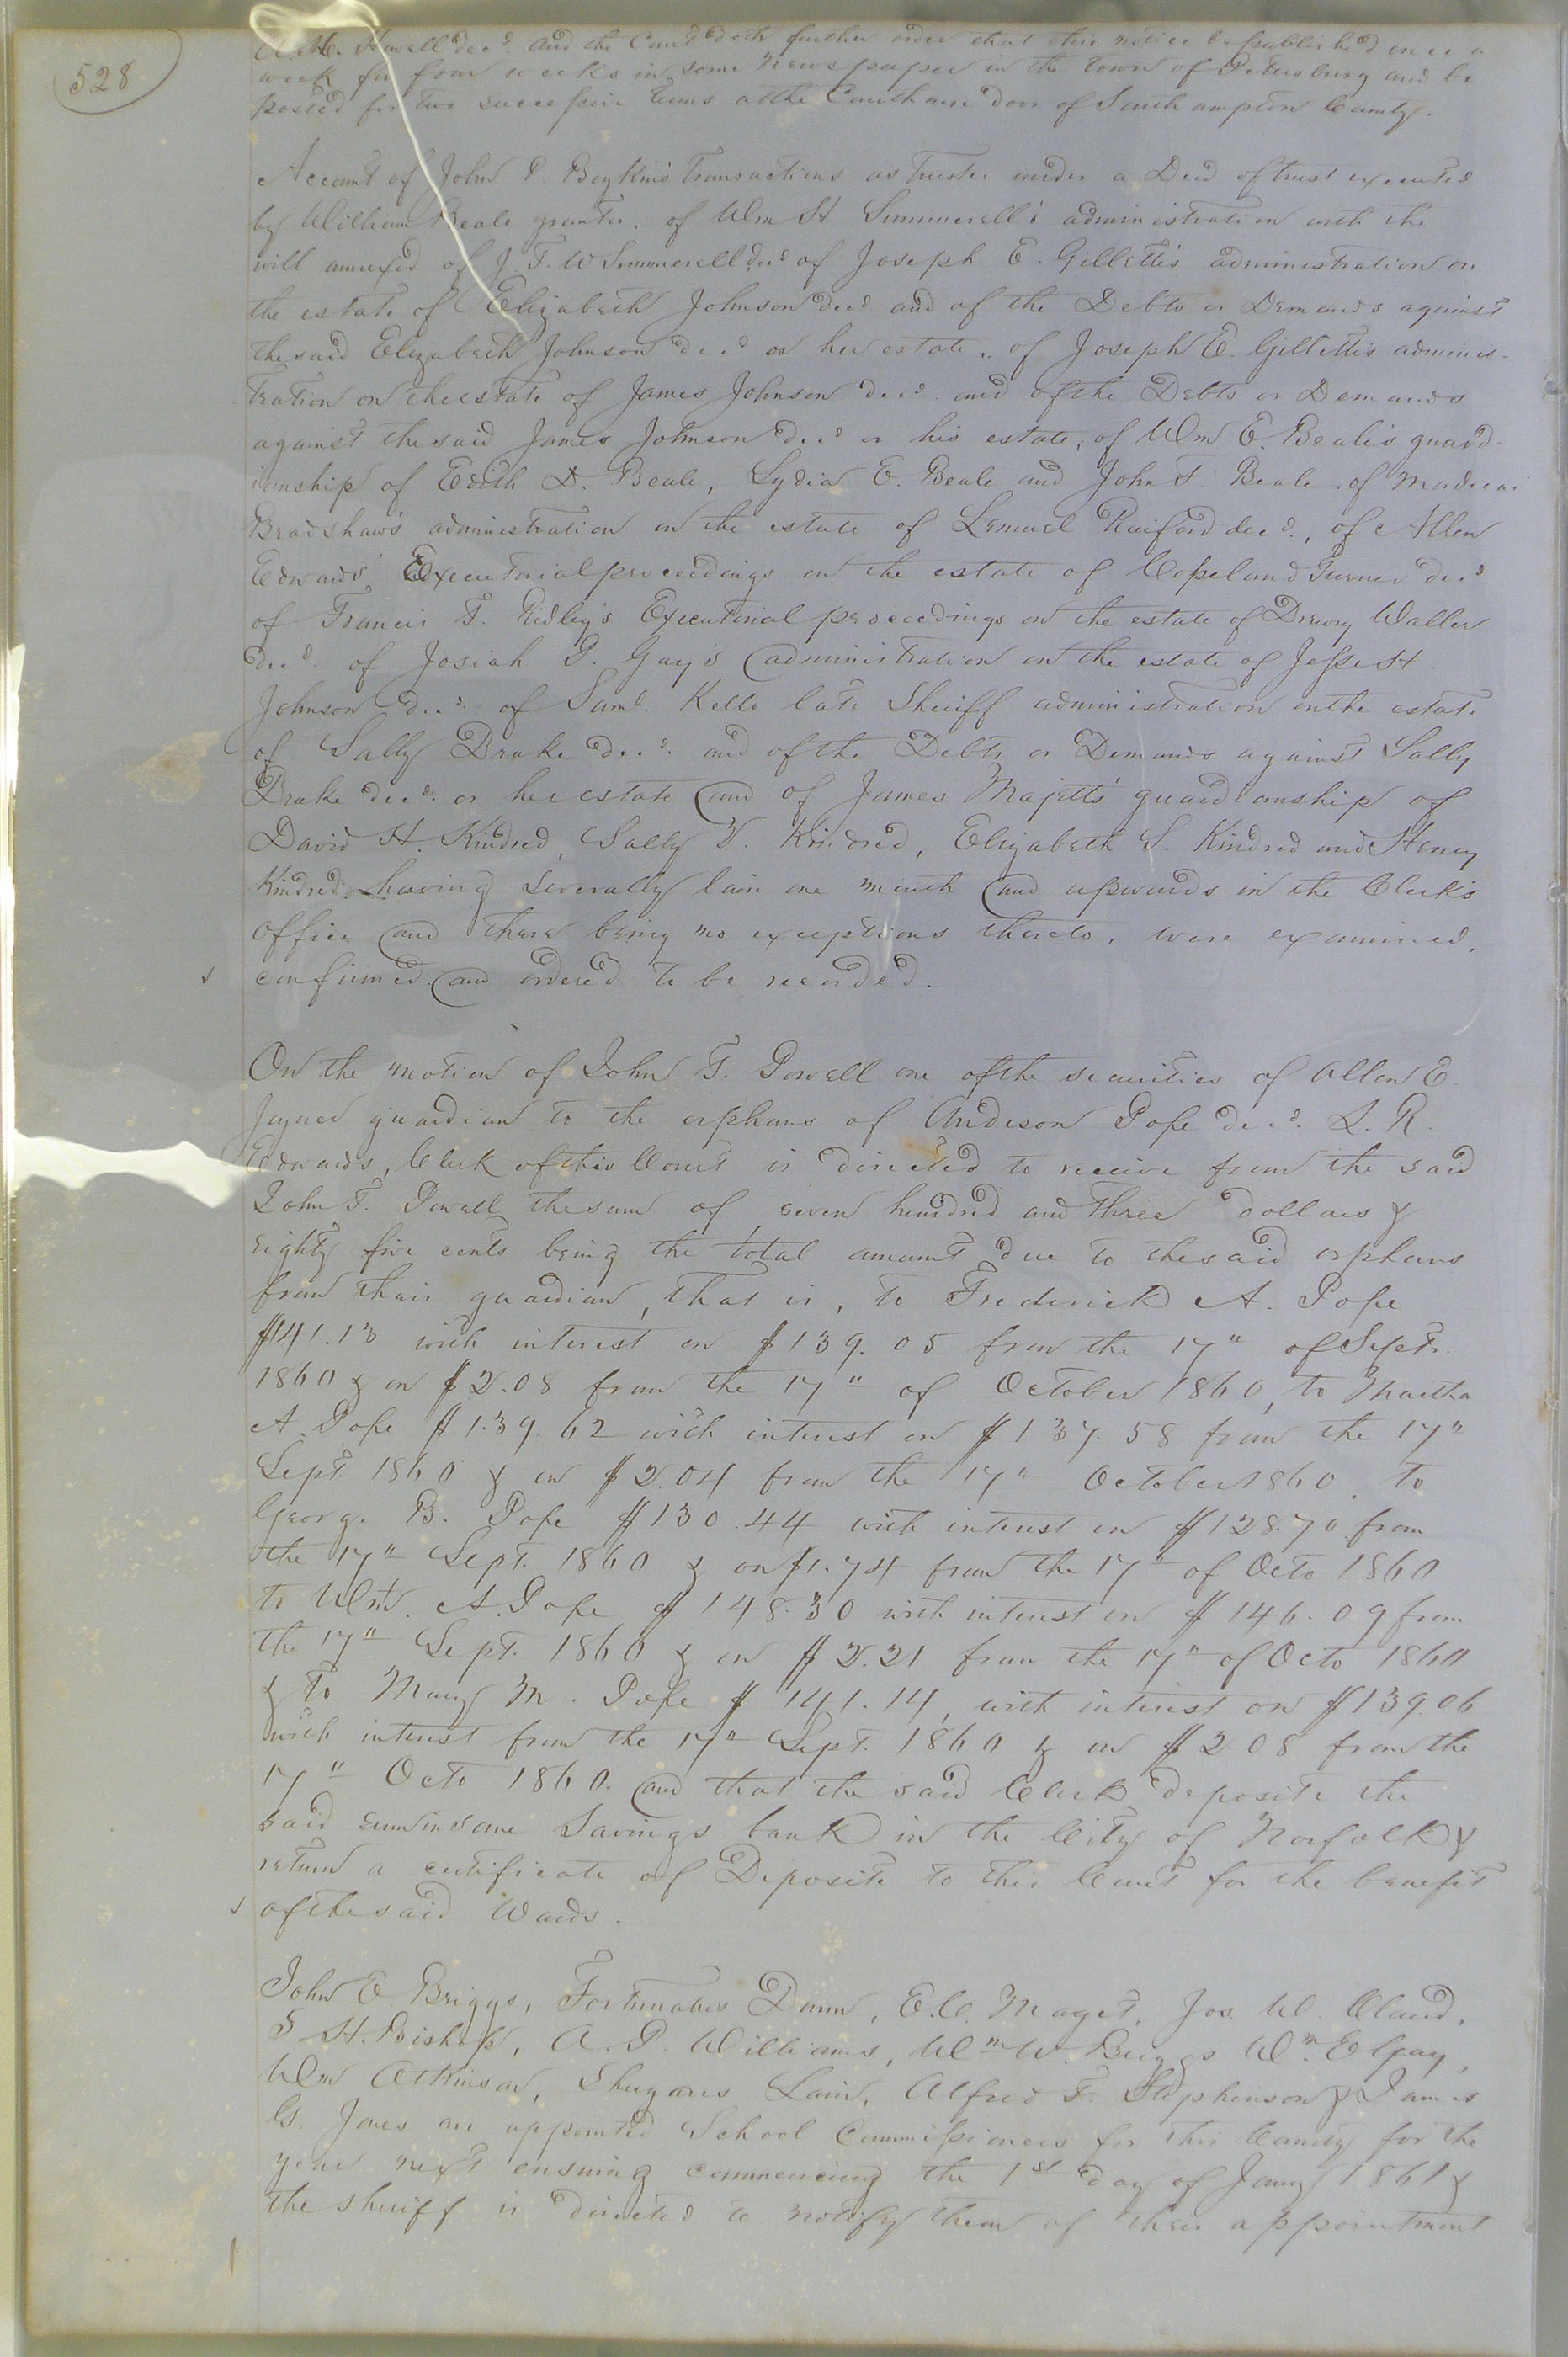 528
dec'd. and the Court doth further order that this notice be published once a
week for four weeks in some Newspaper in the Town of Petersburg and be
posted for two successive terms at the Courthouse door of Southampton County.
Account of John P. Boykin's transactions as trustee under a Deed of trust executed
by William Beale grantor. of Wm H Summerell's administration with the
will annexed of J. T. W Summerell dec'd of Joseph E. Gillette's administration on
the estate of Elizabeth Johnson dec'd and of the Debts or Demands against
the said Elizabeth Johnson dec'd or her estate, of Joseph E. Gillette's adminis-
tration on the estate of James Johnson dec'd. and of the Debts or Demands
against the said James Johnson dec'd or his estate, of Wm E. Beale's guard-
ianship of Edith D. Beale, Lydia E. Beale and John F. Beale, of
Bradshaw's administration on the estate of Lemuel Raiford dec'd., of Allen
Edwards' Executorial proceedings on the estate of Copeland Turner dec'd
of Francis T. Ridley's Executorial proceedings on the estate of Drewry Waller
dec'd. of Josiah P. Gay's administration on the estate of Jesse H.
Johnson dec'd. of Saml. Kello late Sheriff administration on the estate
of Sally Drake dec'd. and of the Debts or Demands against Sally
Drake dec'd. or her estate and of James Majett's guardianship of
David H. Kindred, Sally V. Kindred, Elizabeth S. Kindred and Henry
Kindred having severally lain one month and upwards in the Clerk's
office and there being no exceptions thereto, were examined,
confirmed and ordered to be recorded.
On the motion of John T. Powell one of the securities of Allen E.
Joyner guardian to the orphans of Anderson Pope dec'd. L. R.
Edwards, Clerk of this Court is directed to receive from the said
John T. Powell the sum of seven hundred and three dollars &
eighty five cents being the total amount due to the said orphans
from their guardian, that is, to Frederick A. Pope
$141.13 with interest on $139.05 from the 17" of Sept.
1860 & on $2.08 from the 17" of October 1860, to Martha
A. Pope $139.62 with interest on $137.58 from the 17"
Sept. 1860 & on $2.04 from the 17" October 1860, to
George B. Pope $130.44 with interest on $128.70 from
the 17" Sept. 1860 & on $1.74 from the 17" of Octo 1860
to Wm. A. Pope $148.30 with interest on $146.09 from
the 17" Sept. 1860 & on $2.21 from the 17" of Octo 1860
& to Mary M. Pope $141.14, with interest on $139.06
with interest from the 17" Sept. 1860 & on $2.08 from the
17" Octo 1860. and that the said Clerk deposite the
said sum in some Savings bank in the City of Norfolk &
return a certificate of Deposite to this Court for the benefit
of the said Wards.
John E Briggs, Fortunatus Dunn, E.C. Maget, Jos. W. Claud,
S H. Bishop, A. P. Williams, Wm W. Briggs Wm. E. Gay,
Wm Atkinson, Shugars Lain, Alfred F. Stephenson & James
G. Jones are appointed School Commissioners for this County for the
year next ensuing commencing the 1st day of Jany 1861 &
the sheriff is directed to notify them of their appointment